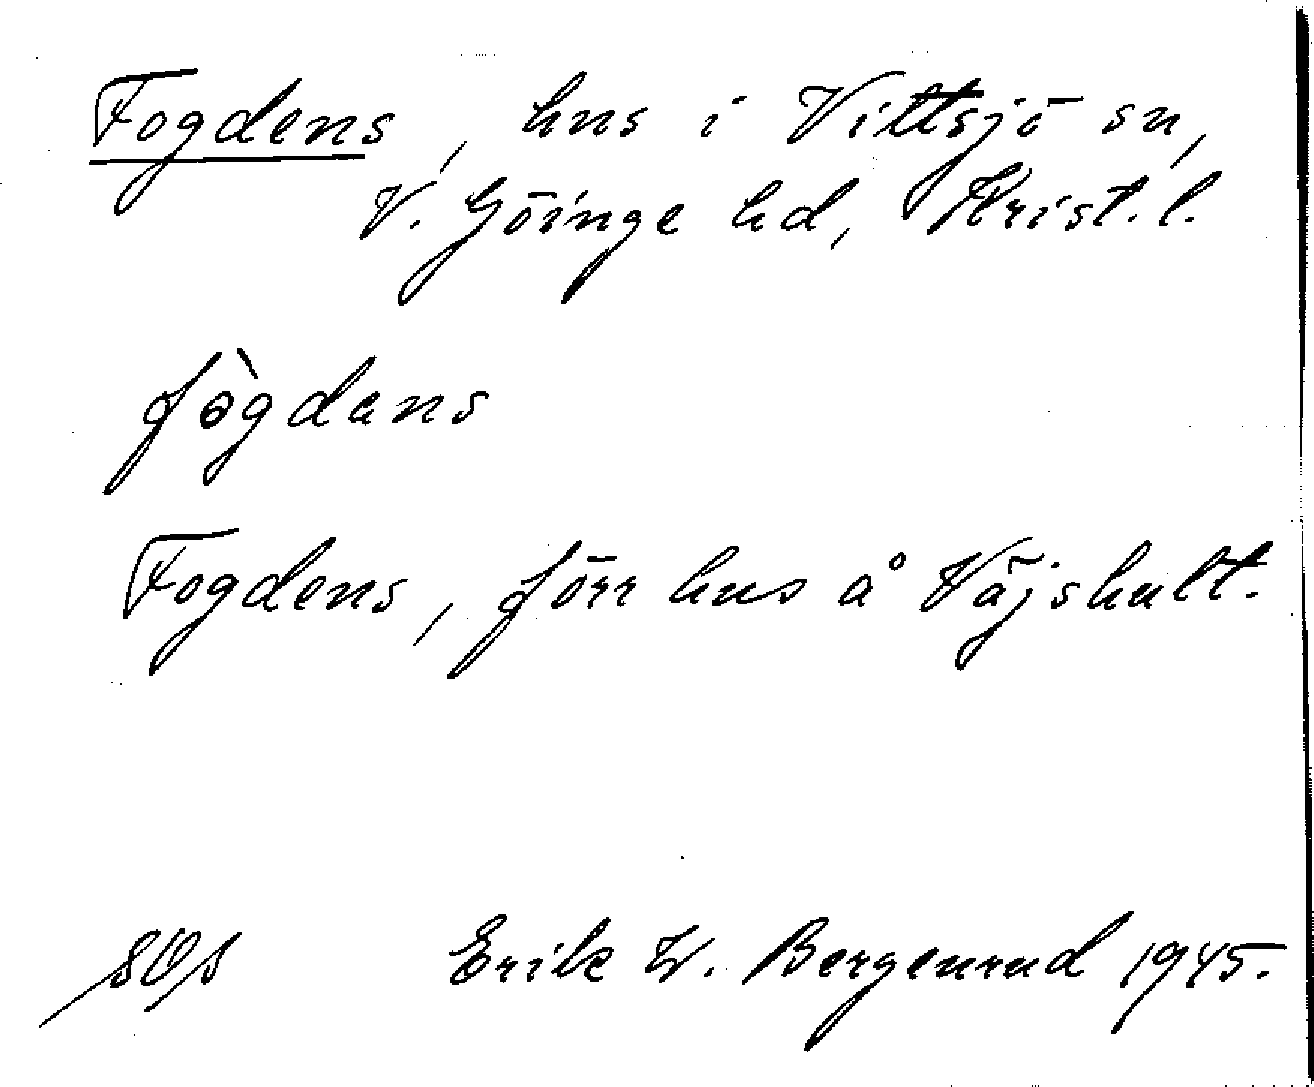 Fogdens, hus i Vittsjö sn,
V. Göinge hd, Krist. l.
fògdans
Fogdens, förr hus å Väjshult.
Erik W. Bergenrud 1945.